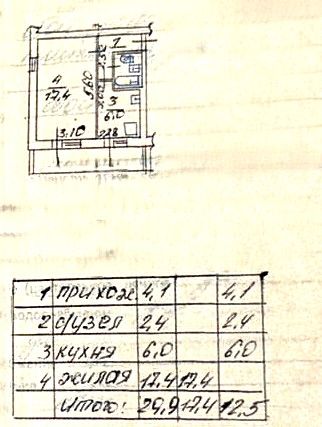 1
4
17,4
5,60
3
6,0
3.10
1 прихож. 4,1 4,1
2 с/узел 2,4 2,4
3 кухня 6,0 6,0
4 жилая 17,4 17,4
Итого: 29,9 17,4 12,5